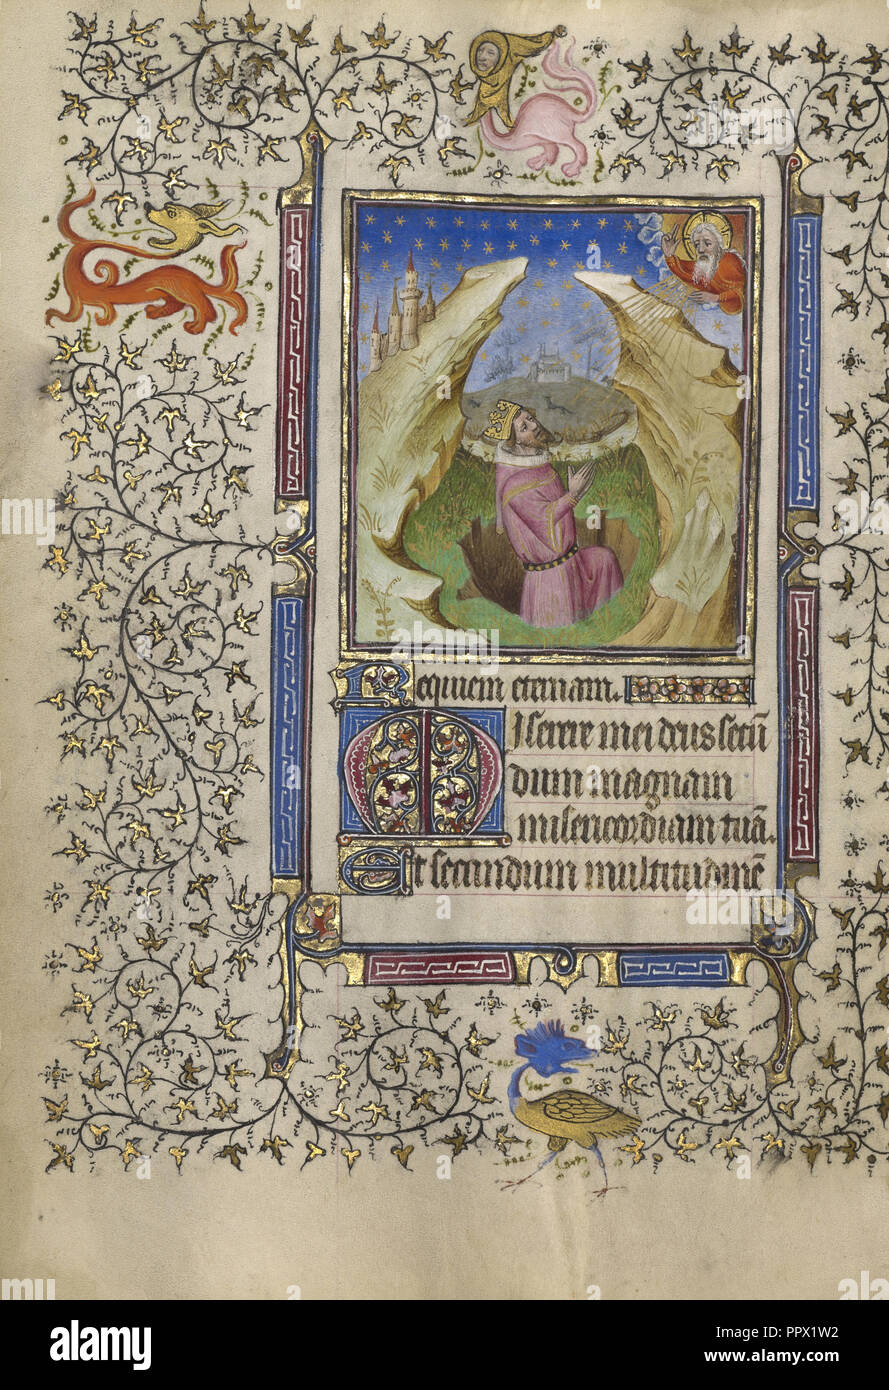 Requiem eternam.
Miserere mei deus secū
dium magnam
misericordiam tuā.
Et secundum multitudinē
alamy
Image ID: PPX1W2
www.alamy.com